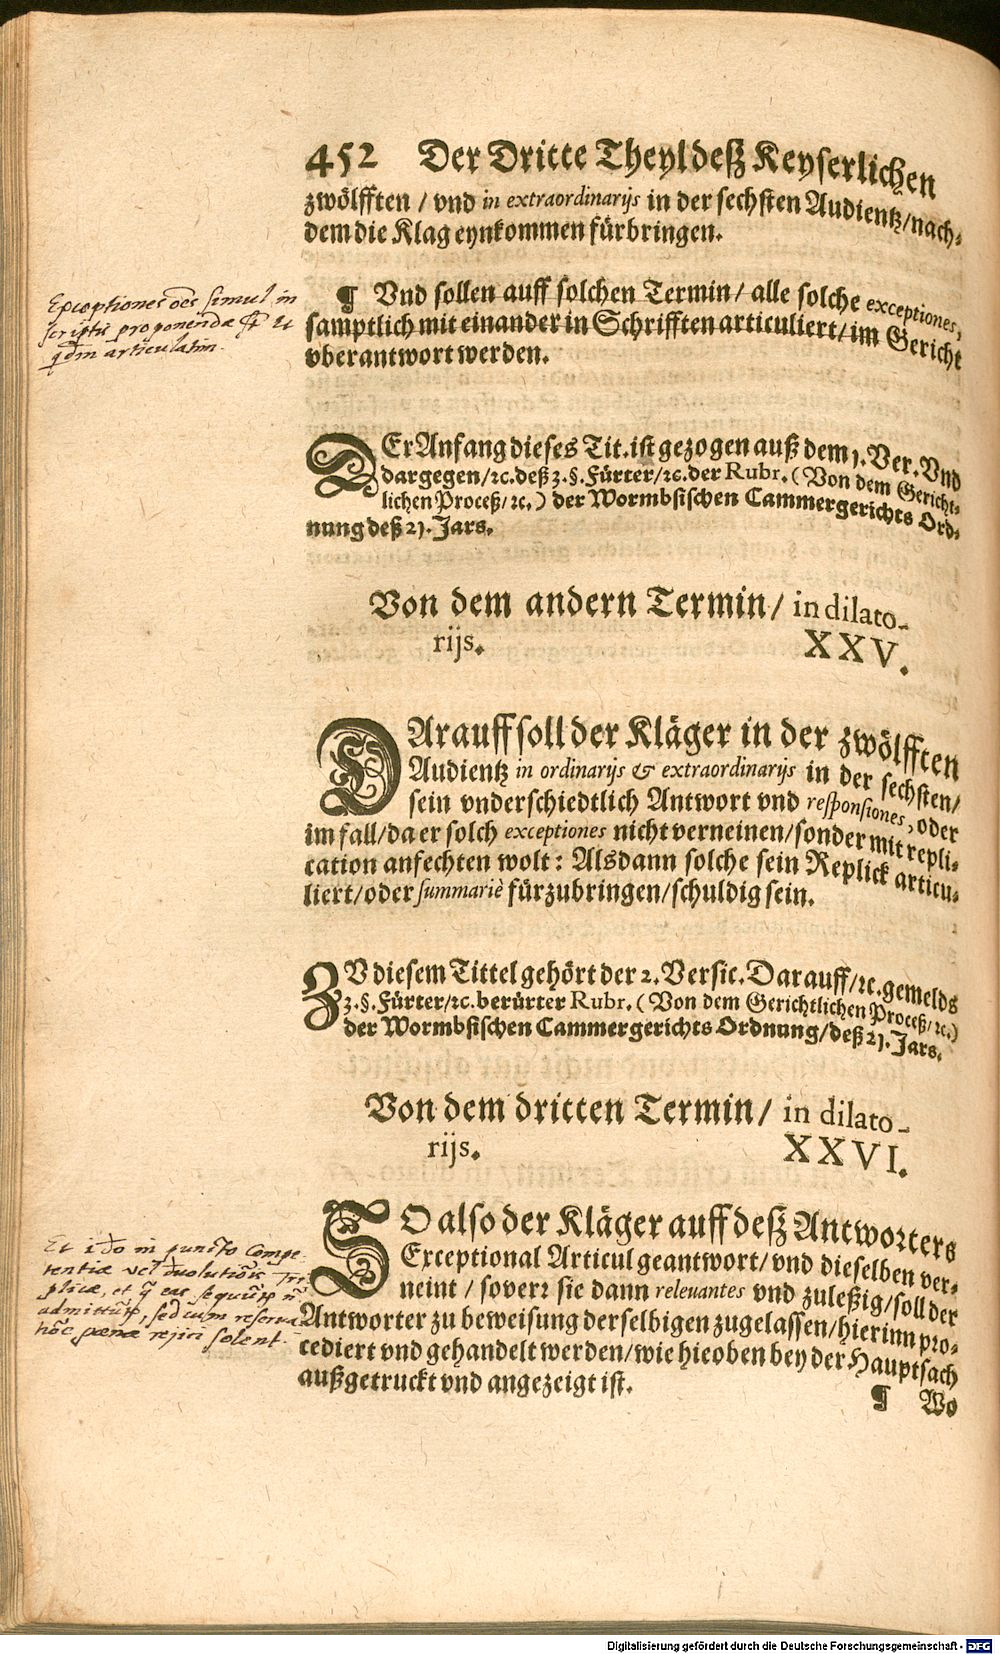 452 Der Dritte Theyl deß Keyserlichen
zwölfften / vnd in extraordinarijs in der sechsten Audientz / nach-
dem die Klag eynkommen fürbringen.
Exceptiones oēs simul in
scriptis proponendæ et
articulatim.
¶ Vnd sollen auff solchen Termin / alle solche exceptiones,
samptlich mit einander in Schrifften articuliert / im Gericht
vberantwort werden.
DEr Anfang dieses Tit. ist gezogen auß dem 1. Ver. Vnd
dargegen / ꝛc. deß 3. §. Fürter / ꝛc. der Rubr. (Von dem Gericht-
lichen Proceß / ꝛc.) der Wormbsischen Cammergerichts Ord-
nung deß 21. Jars.
Von dem andern Termin / in dilato-
rijs. XXV.
DArauff soll der Kläger in der zwölfften
Audientz in ordinarijs & extraordinarijs in der sechsten /
sein vnderschiedtlich Antwort vnd responsiones, oder
im fall / da er solch exceptiones nicht verneinen / sonder mit repli-
cation anfechten wolt : Alsdann solche sein Replick articu-
liert / oder summariè fürzubringen / schuldig sein.
ZV diesem Tittel gehört der 2. Versic. Darauff / ꝛc. gemelds
3. §. Fürter / ꝛc. berürter Rubr. (Von dem Gerichtlichen Proceß / ꝛc.)
der Wormbsischen Cammergerichts Ordnung / deß 21. Jars.
Von dem dritten Termin / in dilato-
rijs. XXVI.
SO also der Kläger auff deß Antworters
Exceptional Articul geantwort / vnd dieselben ver-
neint / soverꝛ sie dann releuantes vnd zuleßig / soll der
Antworter zu beweisung derselbigen zugelassen / hierinn pro-
cediert vnd gehandelt werden / wie hieoben bey der Hauptsach
außgetruckt vnd angezeigt ist.
Et in puncto Compe-
tentiæ vel
plicæ, et
admittunt, sed cum reserva
pœnæ rejici solent.
¶ Wo
Digitalisierung gefördert durch die Deutsche Forschungsgemeinschaft - DFG